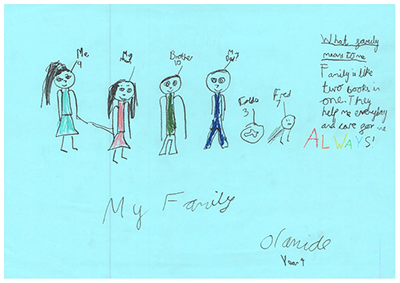 Me
9
My
Brother
10
My
3
Fred
7
What family
means to me
Family is like
two books in
one. They
help me everyday
and care for me
ALWAYS!
My Family
Olamide
Year 4